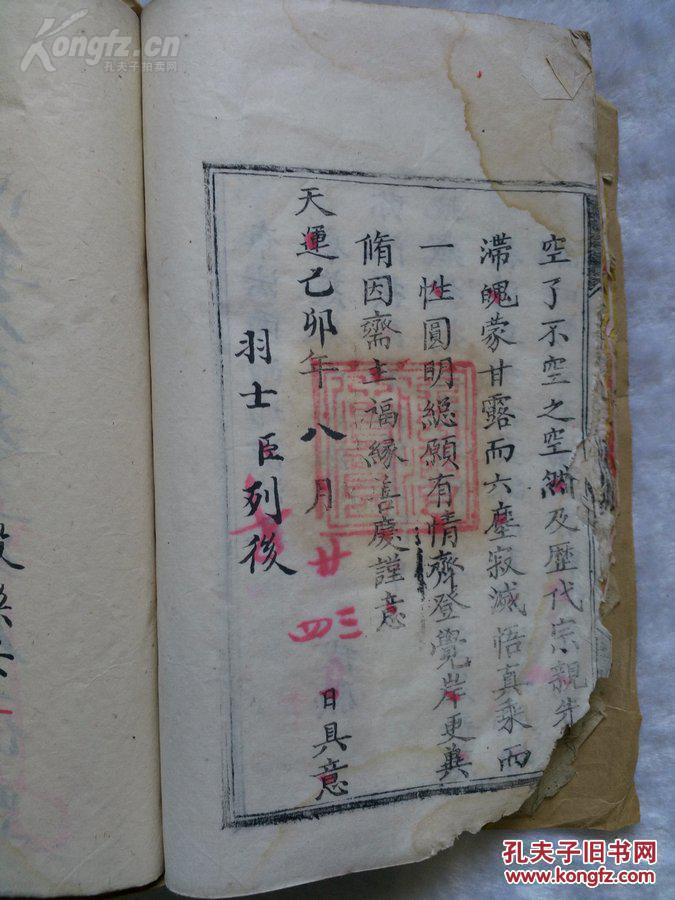 空了不空之空然及歷代宗親先
滞魄蒙甘露而六塵寂滅悟真乘而
一性圓明總願有情齊登覺岸更兾
脩因齋主福縁善慶謹意
天運己卯年八月廿三四日具意
羽士臣列後
Kongfz.cn
孔夫子拍卖网
孔夫子旧书网
KONGFZ.COM